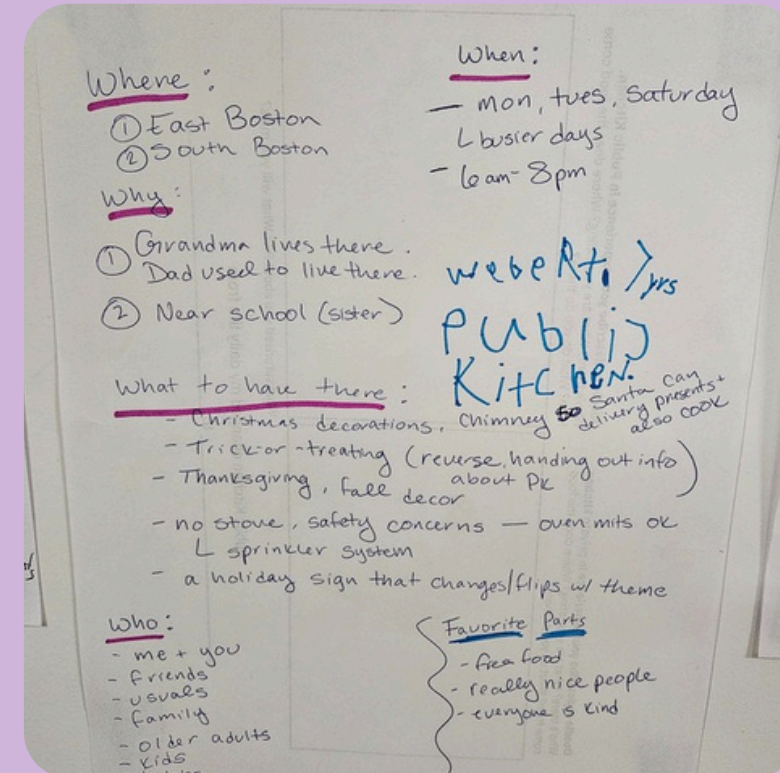 Where:
① East Boston
② South Boston
Why:
① Grandma lives there.
Dad used to live there.
② Near school (sister)
When:
— mon, tues, Saturday
L busier days
- 6am-8pm
yrs
PUbliJ
KitCheN.
What to have there:
- Christmas decorations, Chimney so Santa can
delivery presents +
also cook
- Trick-or-treating (reverse, handing out info
about PK)
- Thanksgiving, fall decor
- no stove, safety concerns — oven mits ok
L sprinkler system
- a holiday sign that changes/flips w/ theme
Who:
- me + you
- friends
- usuals
- family
- older adults
- kids
Favorite Parts
- free food
- really nice people
- everyone is kind